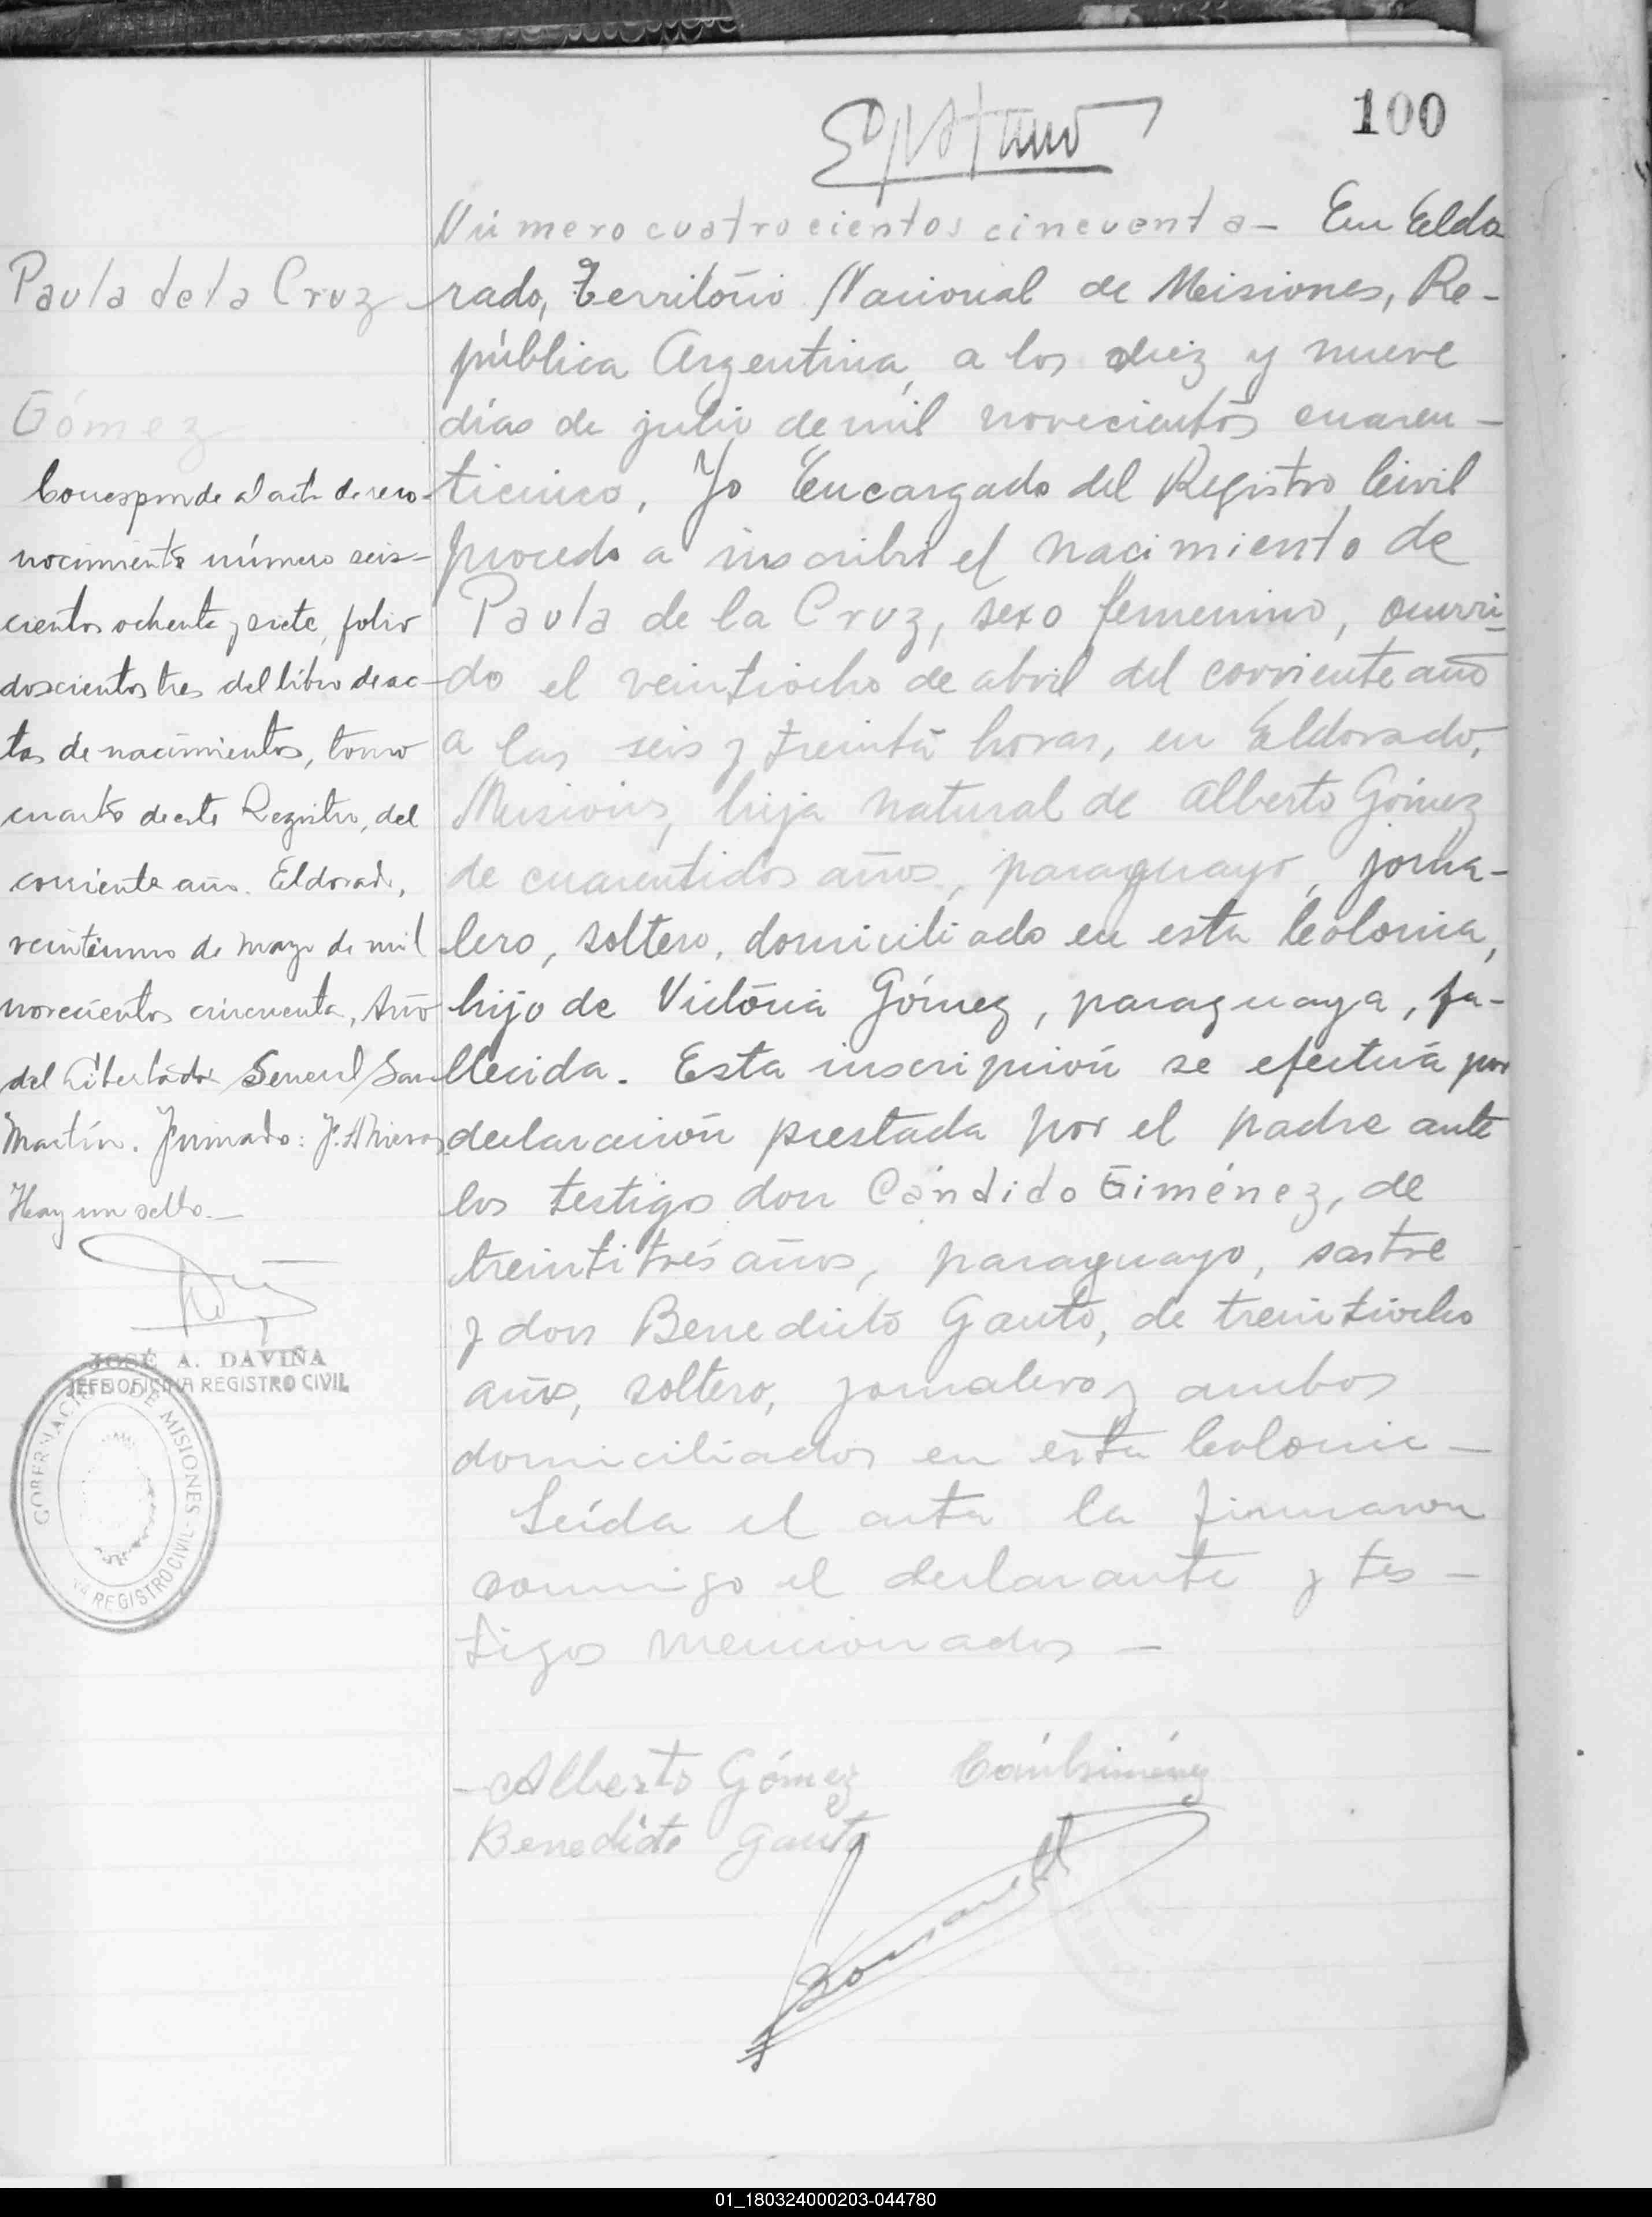 100
Número cuatrocientos cincuenta - En Eldo
rado, Territorio Nacional de Misiones, Re-
pública Argentina, a los diez y nueve
días de julio de mil novecientos cuaren-
ticinco, Yo Encargado del Registro Civil
procedo a inscribir el nacimiento de
Paula de la Cruz, sexo femenino, ocurri-
do el veintiocho de abril del corriente año
a las seis y treinta horas, en Eldorado,
Misiones, hija natural de Alberto Gómez
de cuarentidos años, paraguayo, jorna-
lero, soltero, domiciliado en esta Colonia,
hijo de Victoria Gómez, paraguaya, fa-
llecida. Esta inscripción se efectúa por
declaración prestada por el padre ante
los testigos don Cándido Giménez, de
treintitrés años, paraguayo, sastre
y don Benedicto Gauto, de treintiocho
años, soltero, jornalero, ambos
domiciliados en esta Colonia -
Leída el acta la firmaron
conmigo el declarante y tes-
tigos mencionados -
Alberto Gómez
Benedicto Gauto
Paula de la Cruz
Gómez
Corresponde al acta de reco-
nocimiento número seis-
cientos ochenta y siete, folio
doscientos tres del libro de ac-
tas de nacimientos, tomo
cuarto de este Registro, del
corriente año. Eldorado,
veintiuno de mayo de mil
novecientos cincuenta, Año
del Libertador General San
Martín. Firmado:
Hay un sello.-
JOSÉ A. DAVIÑA
JEFE OFICINA REGISTRO CIVIL
GOBERNACIÓN DE MISIONES
REGISTRO CIVIL
01_180324000203-044780